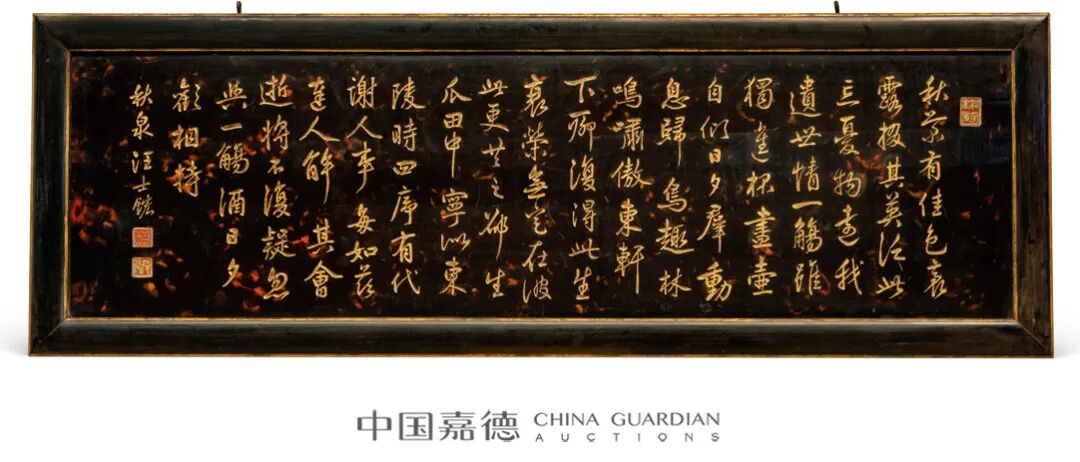 秋菊有佳色裛
露掇其英汎此
忘憂物遠我
遺世情一觴雖
獨進杯盡壺
自傾日夕羣動
息歸鳥趣林
鳴嘯傲東軒
下聊復得此生
衰榮無定在彼
此更共之邵生
瓜田中寧似東
陵時四序有代
謝人事每如茲
達人解其會
逝將不復疑忽
與一觴酒日夕
歡相持
秋泉汪士鋐
中国嘉德 CHINA GUARDIAN
AUCTIONS